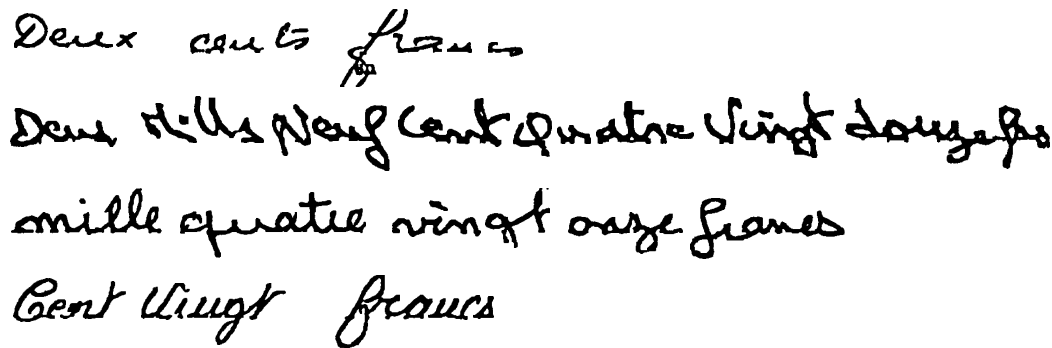 Deux cents francs
Deux Mills Neuf Cent Quatre Vingt douze frs
mille quatre vingt onze francs
Cent Vingt francs